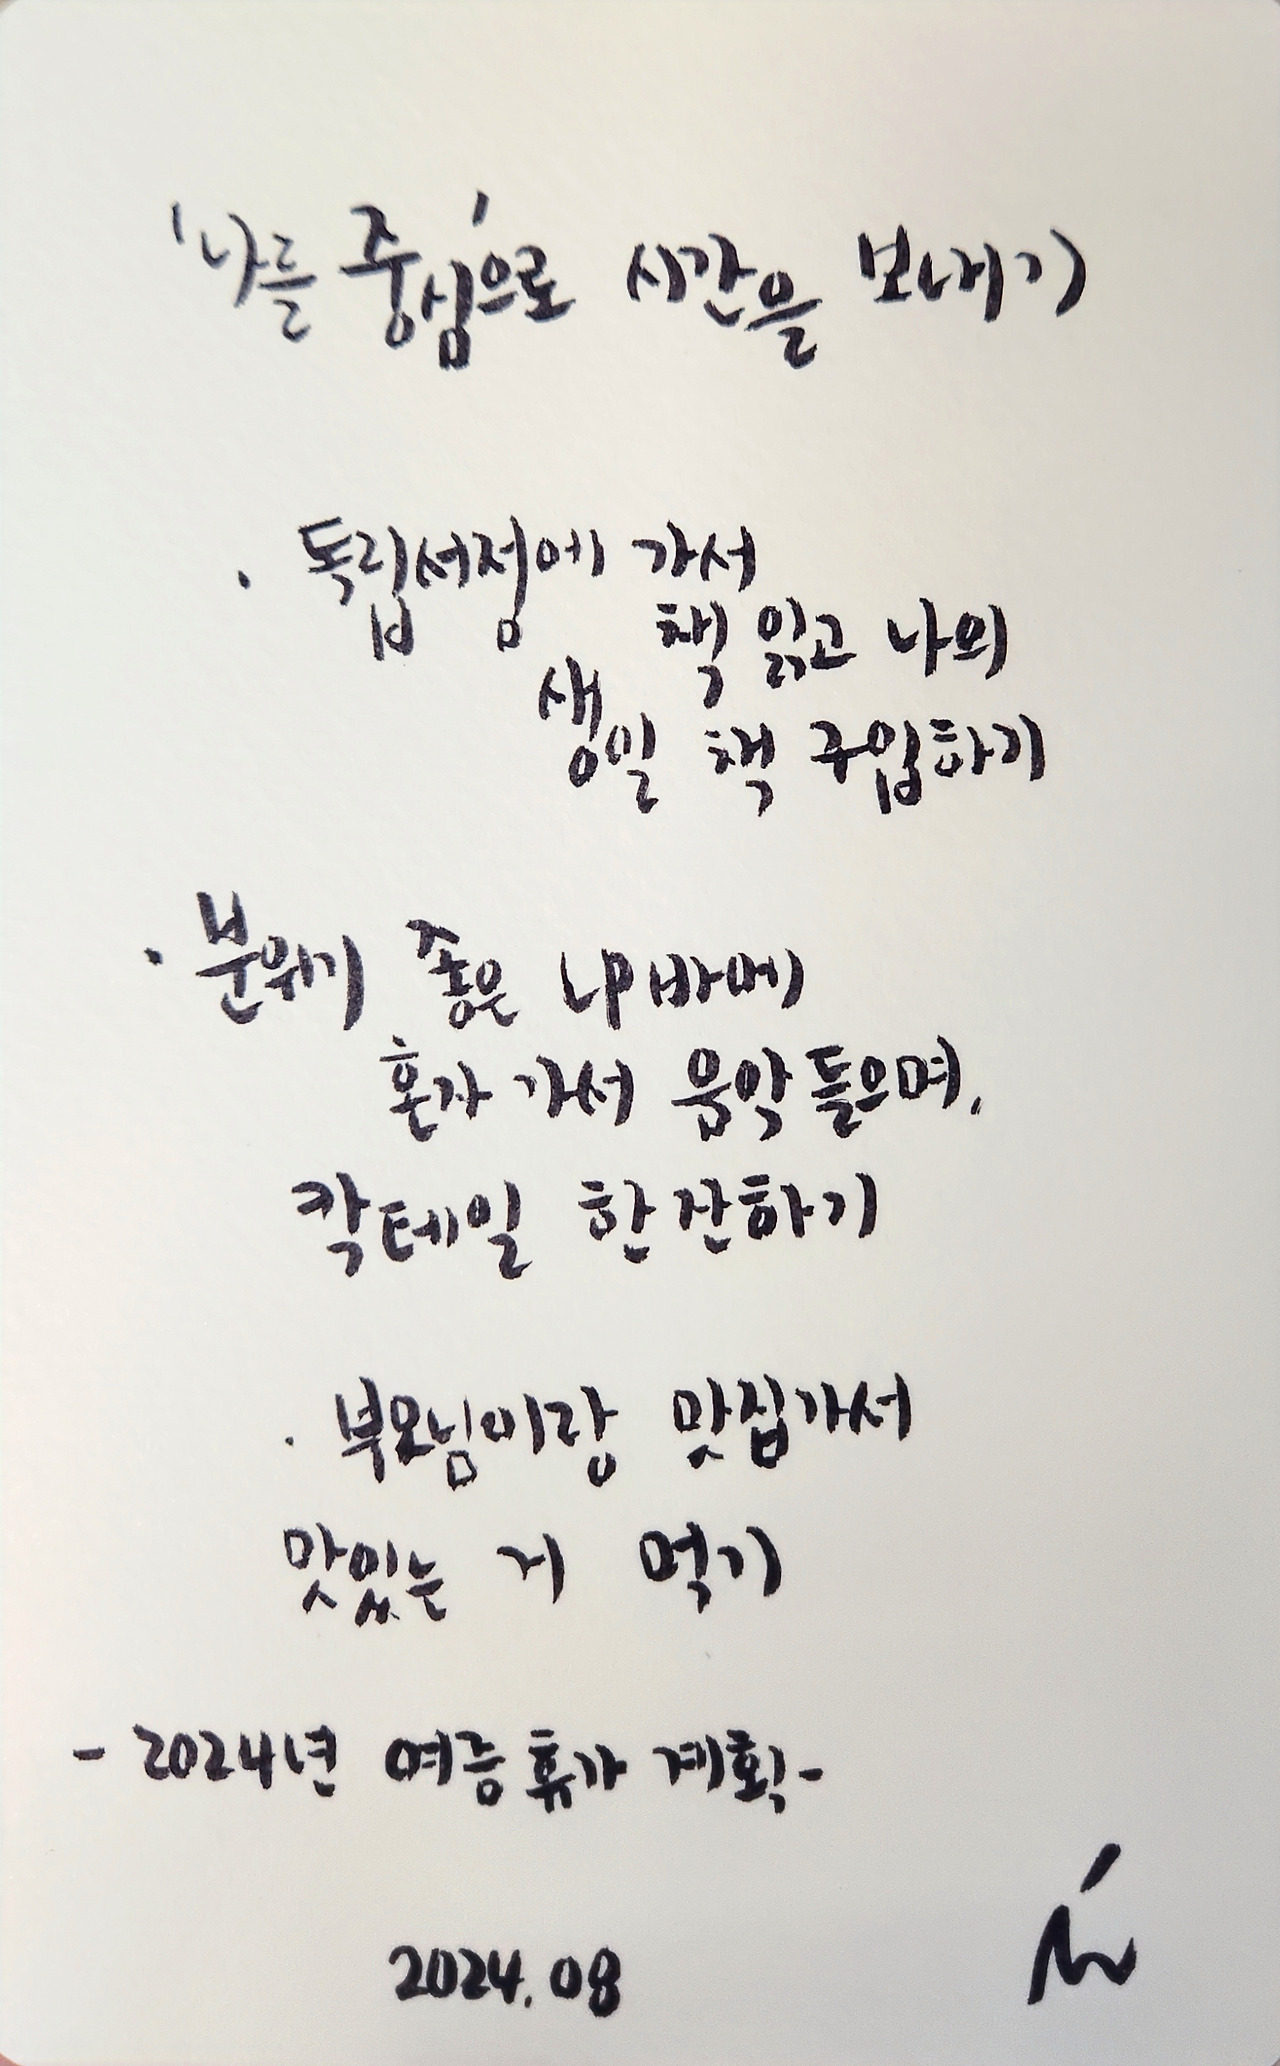 '나를 중심'으로 시간을 보내기
· 독립서점에 가서
책 읽고 나의
생일 책 구입하기
· 분위기 좋은 LP바에
혼자 가서 음악 들으며,
칵테일 한잔하기
· 부모님이랑 맛집가서
맛있는 거 먹기
- 2024년 여름휴가 계획 -
2024. 08